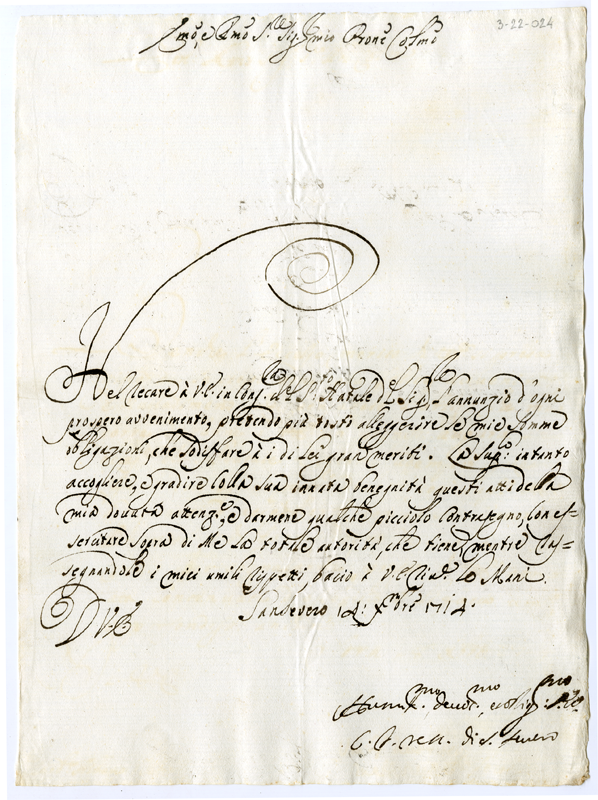 3-22-024
Emo, e Rmo Sre Sig. mio Prone Colmo
Nel recare à V.E. in Cong.za del S.to Natale del Sig.re l'annunzio d'ogni
prospero avvenimento, pretendo più tosto alleggerire le mie somme
obligazioni, che sodisfare à i di Lei gran meriti. La Sup.co intanto
accogliere, e gradire colla sua innata benegnità questi atti della
mia douuta attenz.e, e darmene qualche picciolo contrasegno, con es=
sercitare sopra di Me la totale autorità, che tiene, mentre ras=
segnandole i miei umili rispetti bacio à V.E. le Mani.
Sansevero 14: Xbre 1714.
D V. E.
Humil.mo deuot.mo, e oblig.mo
di S. Seuero